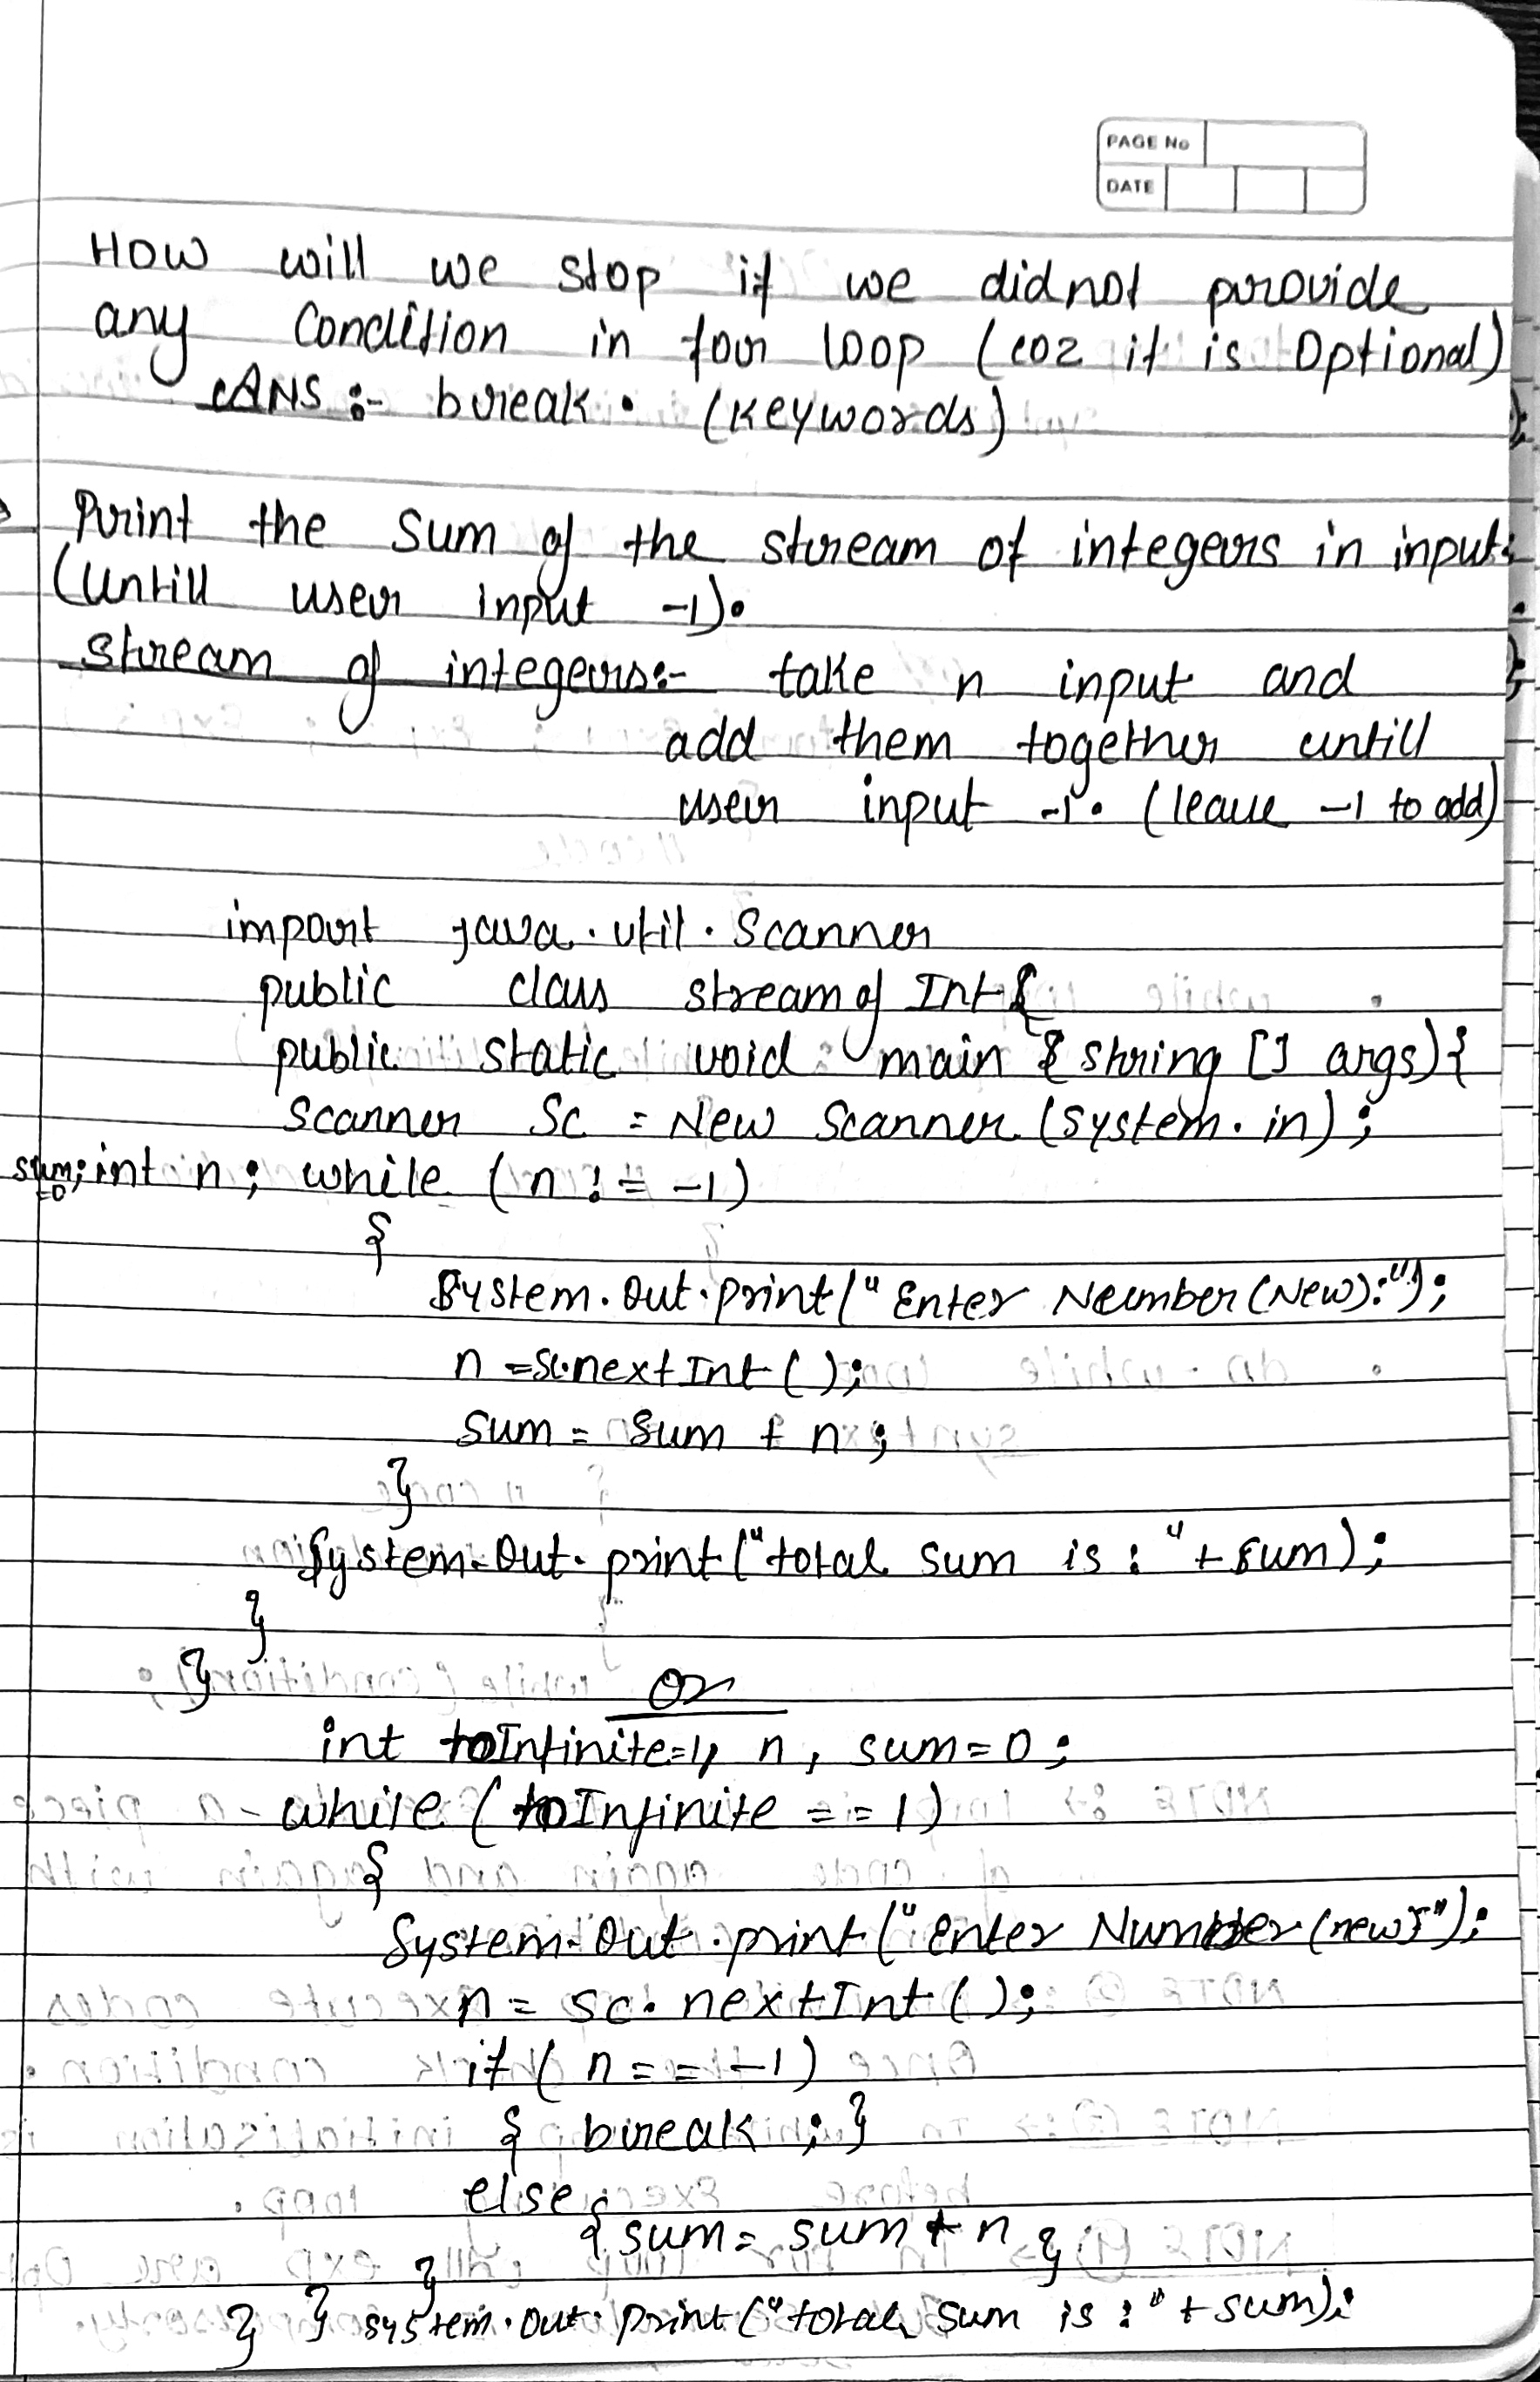 PAGE No
DATE
How will we stop if we did not provide
any Condition in for loop (coz it is Optional)
ANS :- break. (Keywords)
Print the sum of the stream of integers in input.
(Untill user input -1).
stream of integers:- take n input and
add them together untill
user input -1. (leave -1 to add)
import java.util.Scanner
public class streamofInt{
public static void main {string [] args){
Scanner Sc = New Scanner (System.in);
sum; int n; while (n != -1)
=0
{
System.Out.print("Enter Number (New):");
n =sc.nextInt();
sum = Sum + n;
}
System.Out.print("total sum is : "+sum);
}
}
or
int toInfinite=1, n, sum=0;
while (toInfinite == 1)
{
System.Out.print("Enter Number (new}");
n = sc.nextInt();
if (n == -1)
{ break; }
else
{ sum = sum + n }
}
} } system.out.print("total sum is : "+sum);